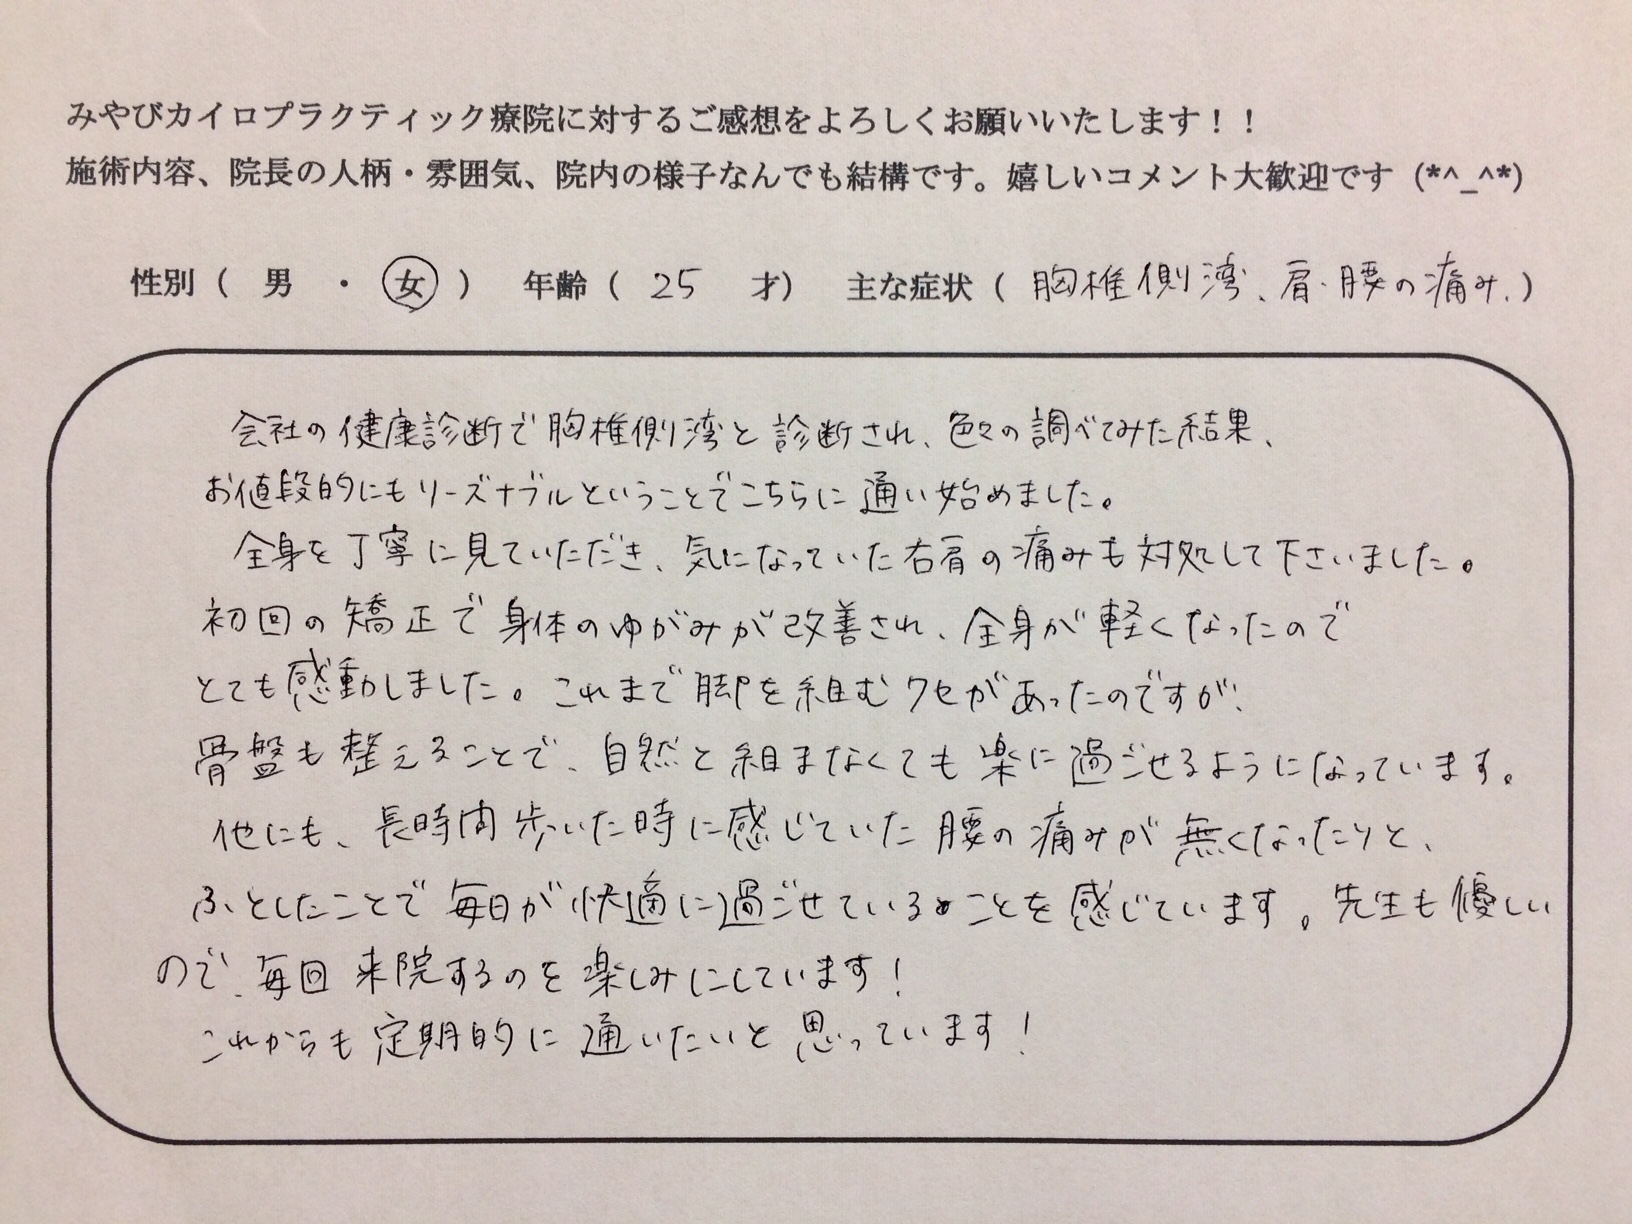 みやびカイロプラクティック療院に対するご感想をよろしくお願いいたします！！
施術内容、院長の人柄・雰囲気、院内の様子なんでも結構です。嬉しいコメント大歓迎です (*^_^*)
性別（ 男 ・ 女 ） 年齢（ 25 才） 主な症状（ 胸椎側湾、肩・腰の痛み. ）
会社の健康診断で胸椎側湾と診断され、色々の調べてみた結果、
お値段的にもリーズナブルということでこちらに通い始めました。
全身を丁寧に見ていただき、気になっていた右肩の痛みも対処して下さいました。
初回の矯正で身体のゆがみが改善され、全身が軽くなったので
とても感動しました。これまで脚を組むクセがあったのですが、
骨盤も整えることで、自然と組まなくても楽に過ごせるようになっています。
他にも、長時間歩いた時に感じていた腰の痛みが無くなったりと、
ふとしたことで毎日が快適に過ごせていることを感じています。先生も優しい
ので、毎回来院するのを楽しみにしています！
これからも定期的に通いたいと思っています！